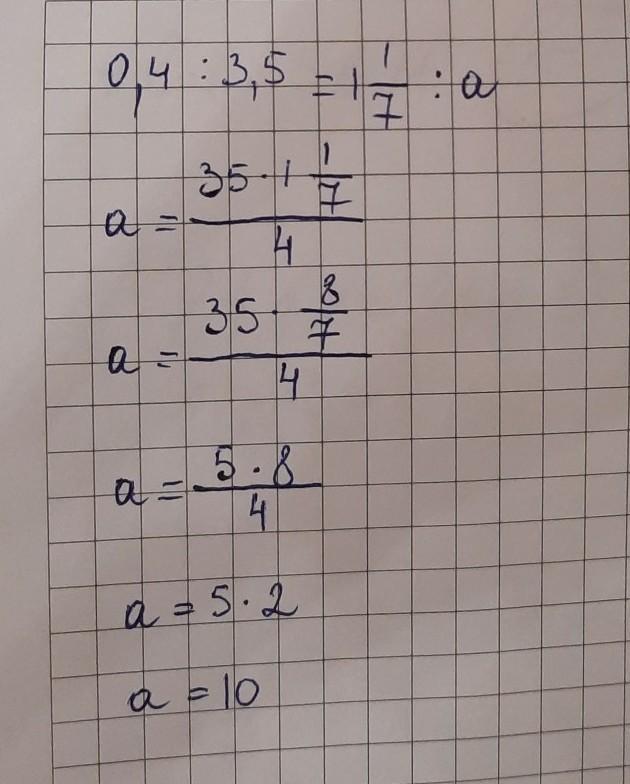 0,4 : 3,5 = 1 1/7 : a
a = (35 · 1 1/7)/4
a = (35 · 8/7)/4
a = (5 · 8)/4
a = 5 · 2
a = 10